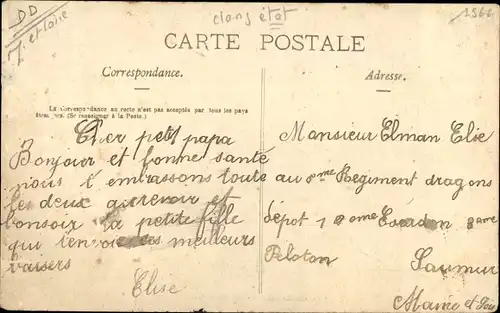 DD
dans état
1566
M. et Loire
CARTE POSTALE
Correspondance.
Adresse.
La Correspondance au recto n'est pas acceptée par tous les pays
étrangers. (Se renseigner à la Poste.)
Cher petit papa
Bonjour et bonne santé
nous t embrassons toute
les deux aurevoir et
bonsoir ta petite fille
qui t'envoie ses meilleurs
baisers
Elise
Monsieur Elman Elie
au 8me Regiment dragons
dépot 1 Esradon 2ame
Peloton
Saumur
Maine et Loire